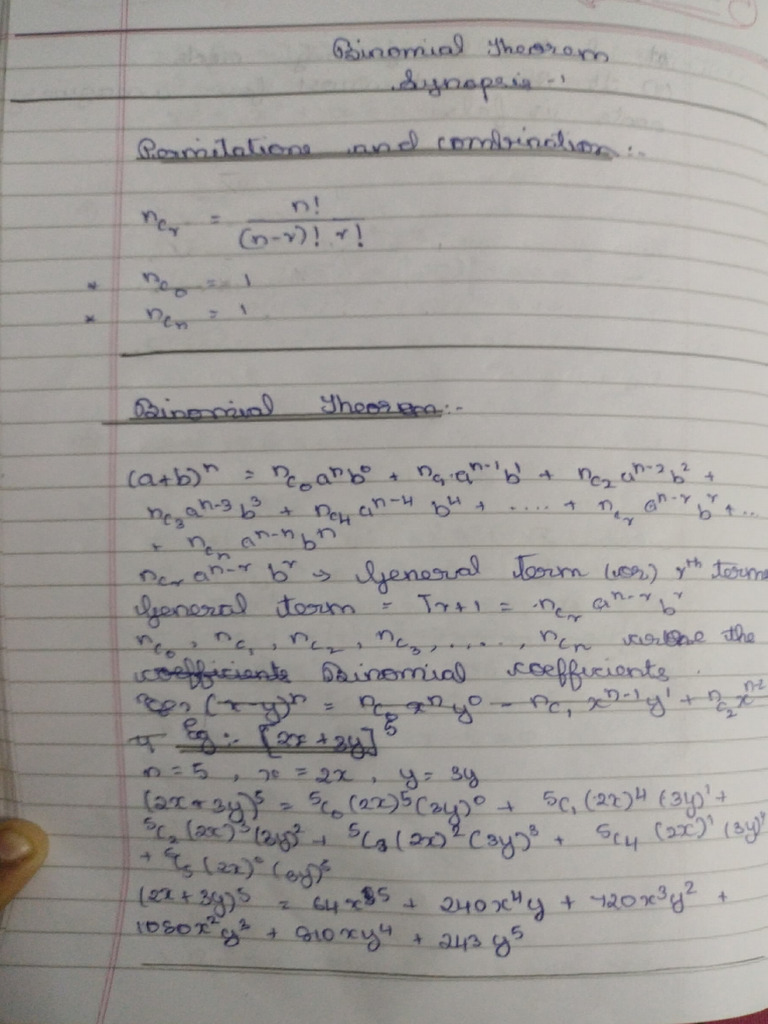 Binomial Theorem
Synopsis -1
Permitations and combination:-
nCr = n! / (n-r)! r!
* nC0 = 1
* nCn = 1
Binomial Theorem:-
(a+b)^n = nC0 a^n b^0 + nC1 a^n-1 b^1 + nC2 a^n-2 b^2 +
nC3 a^n-3 b^3 + nC4 a^n-4 b^4 + .... + nCr a^n-r b^r + ...
+ nCn a^n-n b^n
nCr a^n-r b^r → General Term (or) r^th term
General term = Tr+1 = nCr a^n-r b^r
nC0, nC1, nC2, nC3, ....., nCn are the
coefficients Binomial coefficients.
(x-y)^n = nC0 x^n y^0 - nC1 x^n-1 y^1 + nC2 x^n-2
Eg:- [2x+3y]^5
n=5, x=2x, y=3y
(2x+3y)^5 = 5C0 (2x)^5 (3y)^0 + 5C1 (2x)^4 (3y)^1 +
5C2 (2x)^3 (3y)^2 + 5C3 (2x)^2 (3y)^3 + 5C4 (2x)^1 (3y)^4
+ 5C5 (2x)^0 (3y)^5
(2x+3y)^5 = 64x^5 + 240x^4y + 720x^3y^2 +
1080x^2y^3 + 810xy^4 + 243y^5